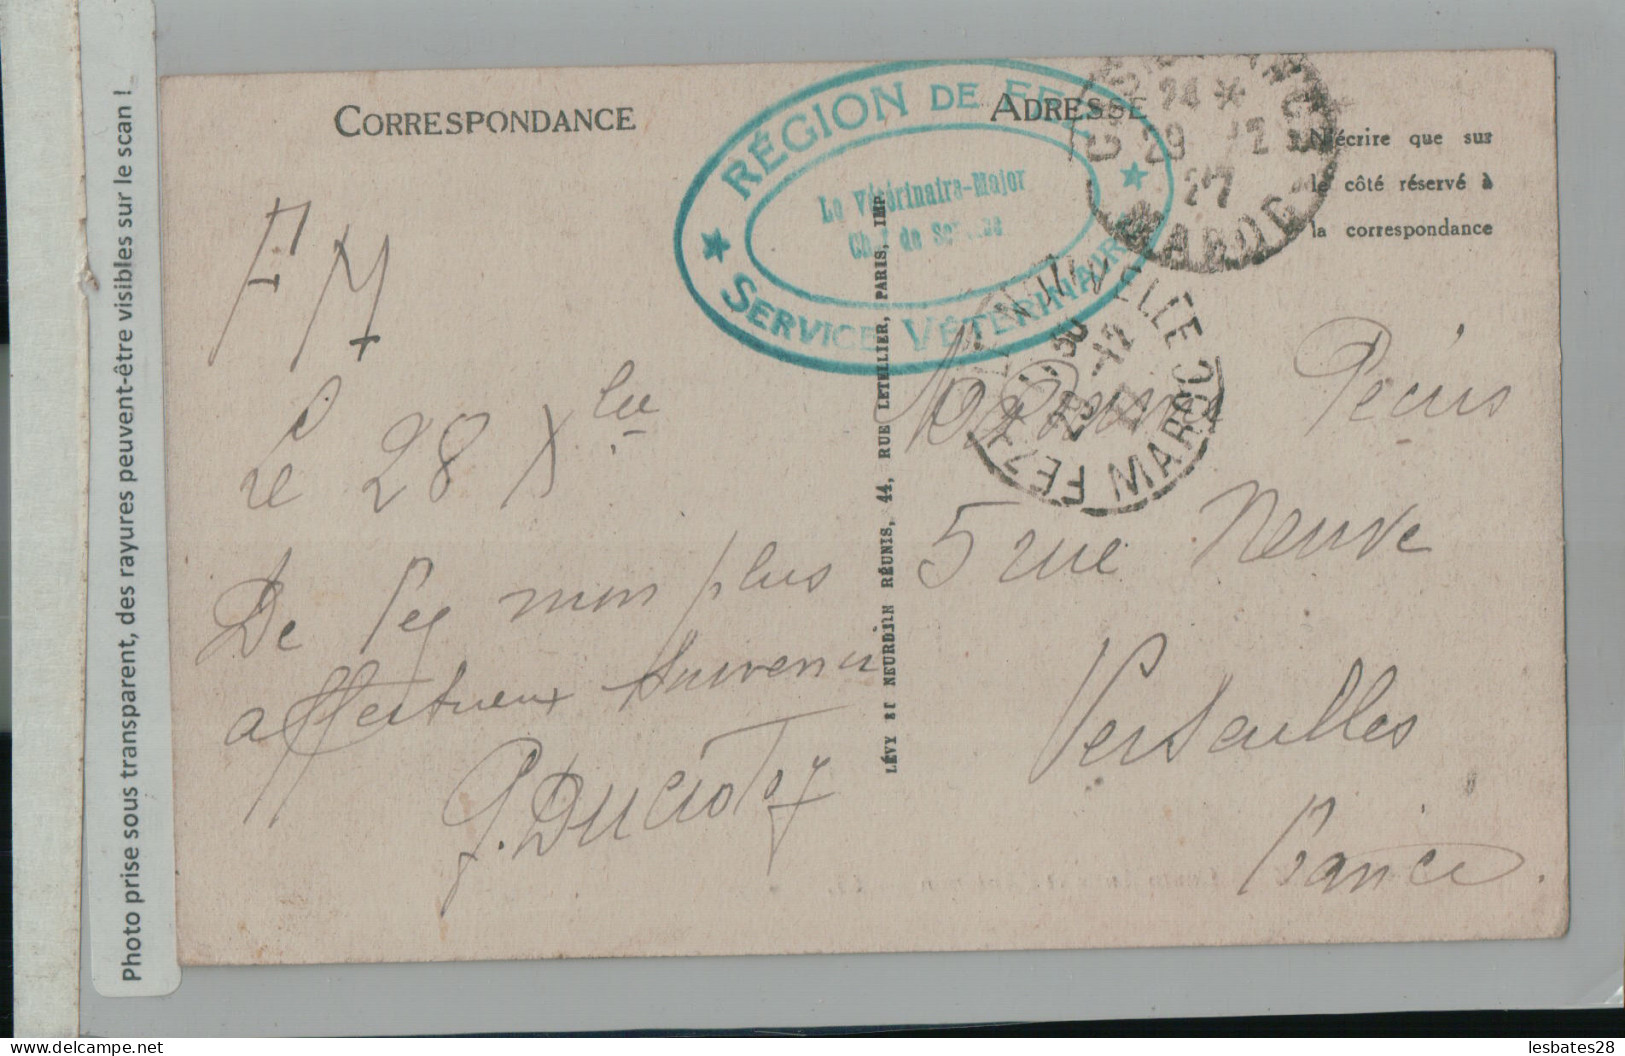 Photo prise sous transparent, des rayures peuvent-être visibles sur le scan !
CORRESPONDANCE
ADRESSE
N'écrire que sur
le côté réservé à
la correspondance
RÉGION DE FEZ
Le Vétérinaire-Major
Chef de Service
SERVICE VÉTÉRINAIRE
24
29 12
27
MAROC
FEZ VILLE NOUVELLE
MAROC
LÉVY ET NEURDEIN RÉUNIS, 44, RUE LETELLIER, PARIS, IMP.
FM
Le 28 Xbre
De Fez mon plus
affectueux souvenir
5 rue Neuve
Versailles
France.
lesbates28